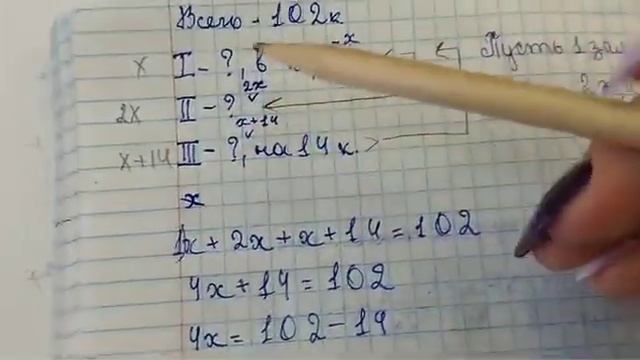 Всего - 102к
x I - ?, в -x
Пусть 1 за
2x
2x II - ?
x+14
x+14 III - ?, на 14 к. >
x
1x + 2x + x + 14 = 102
4x + 14 = 102
4x = 102 - 14